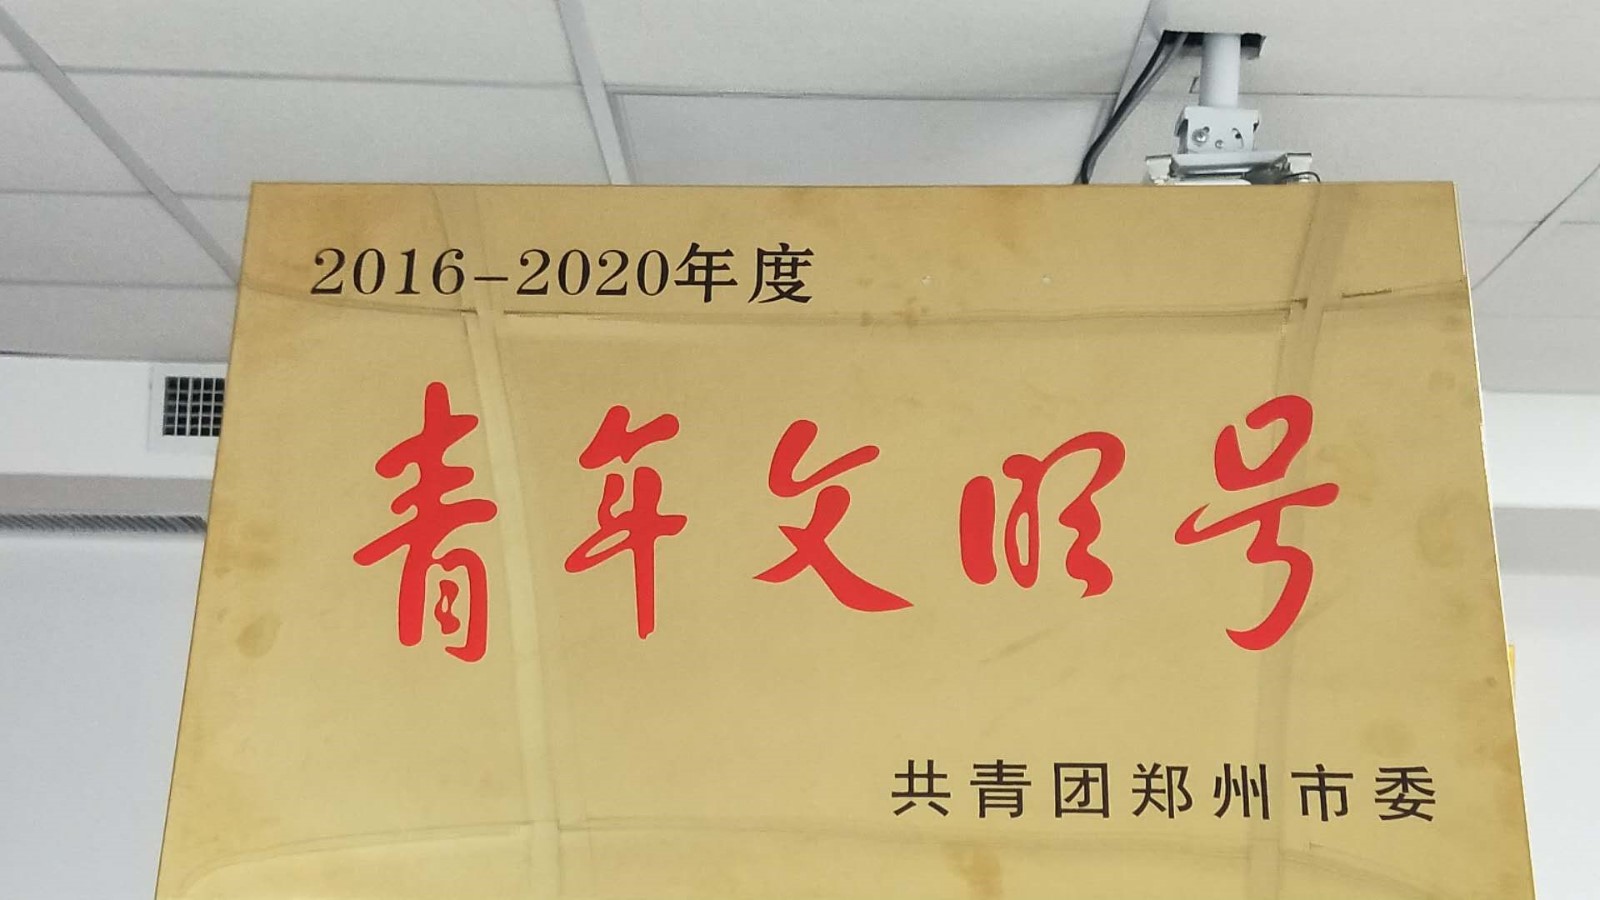 2016-2020年度
青年文明号
共青团郑州市委